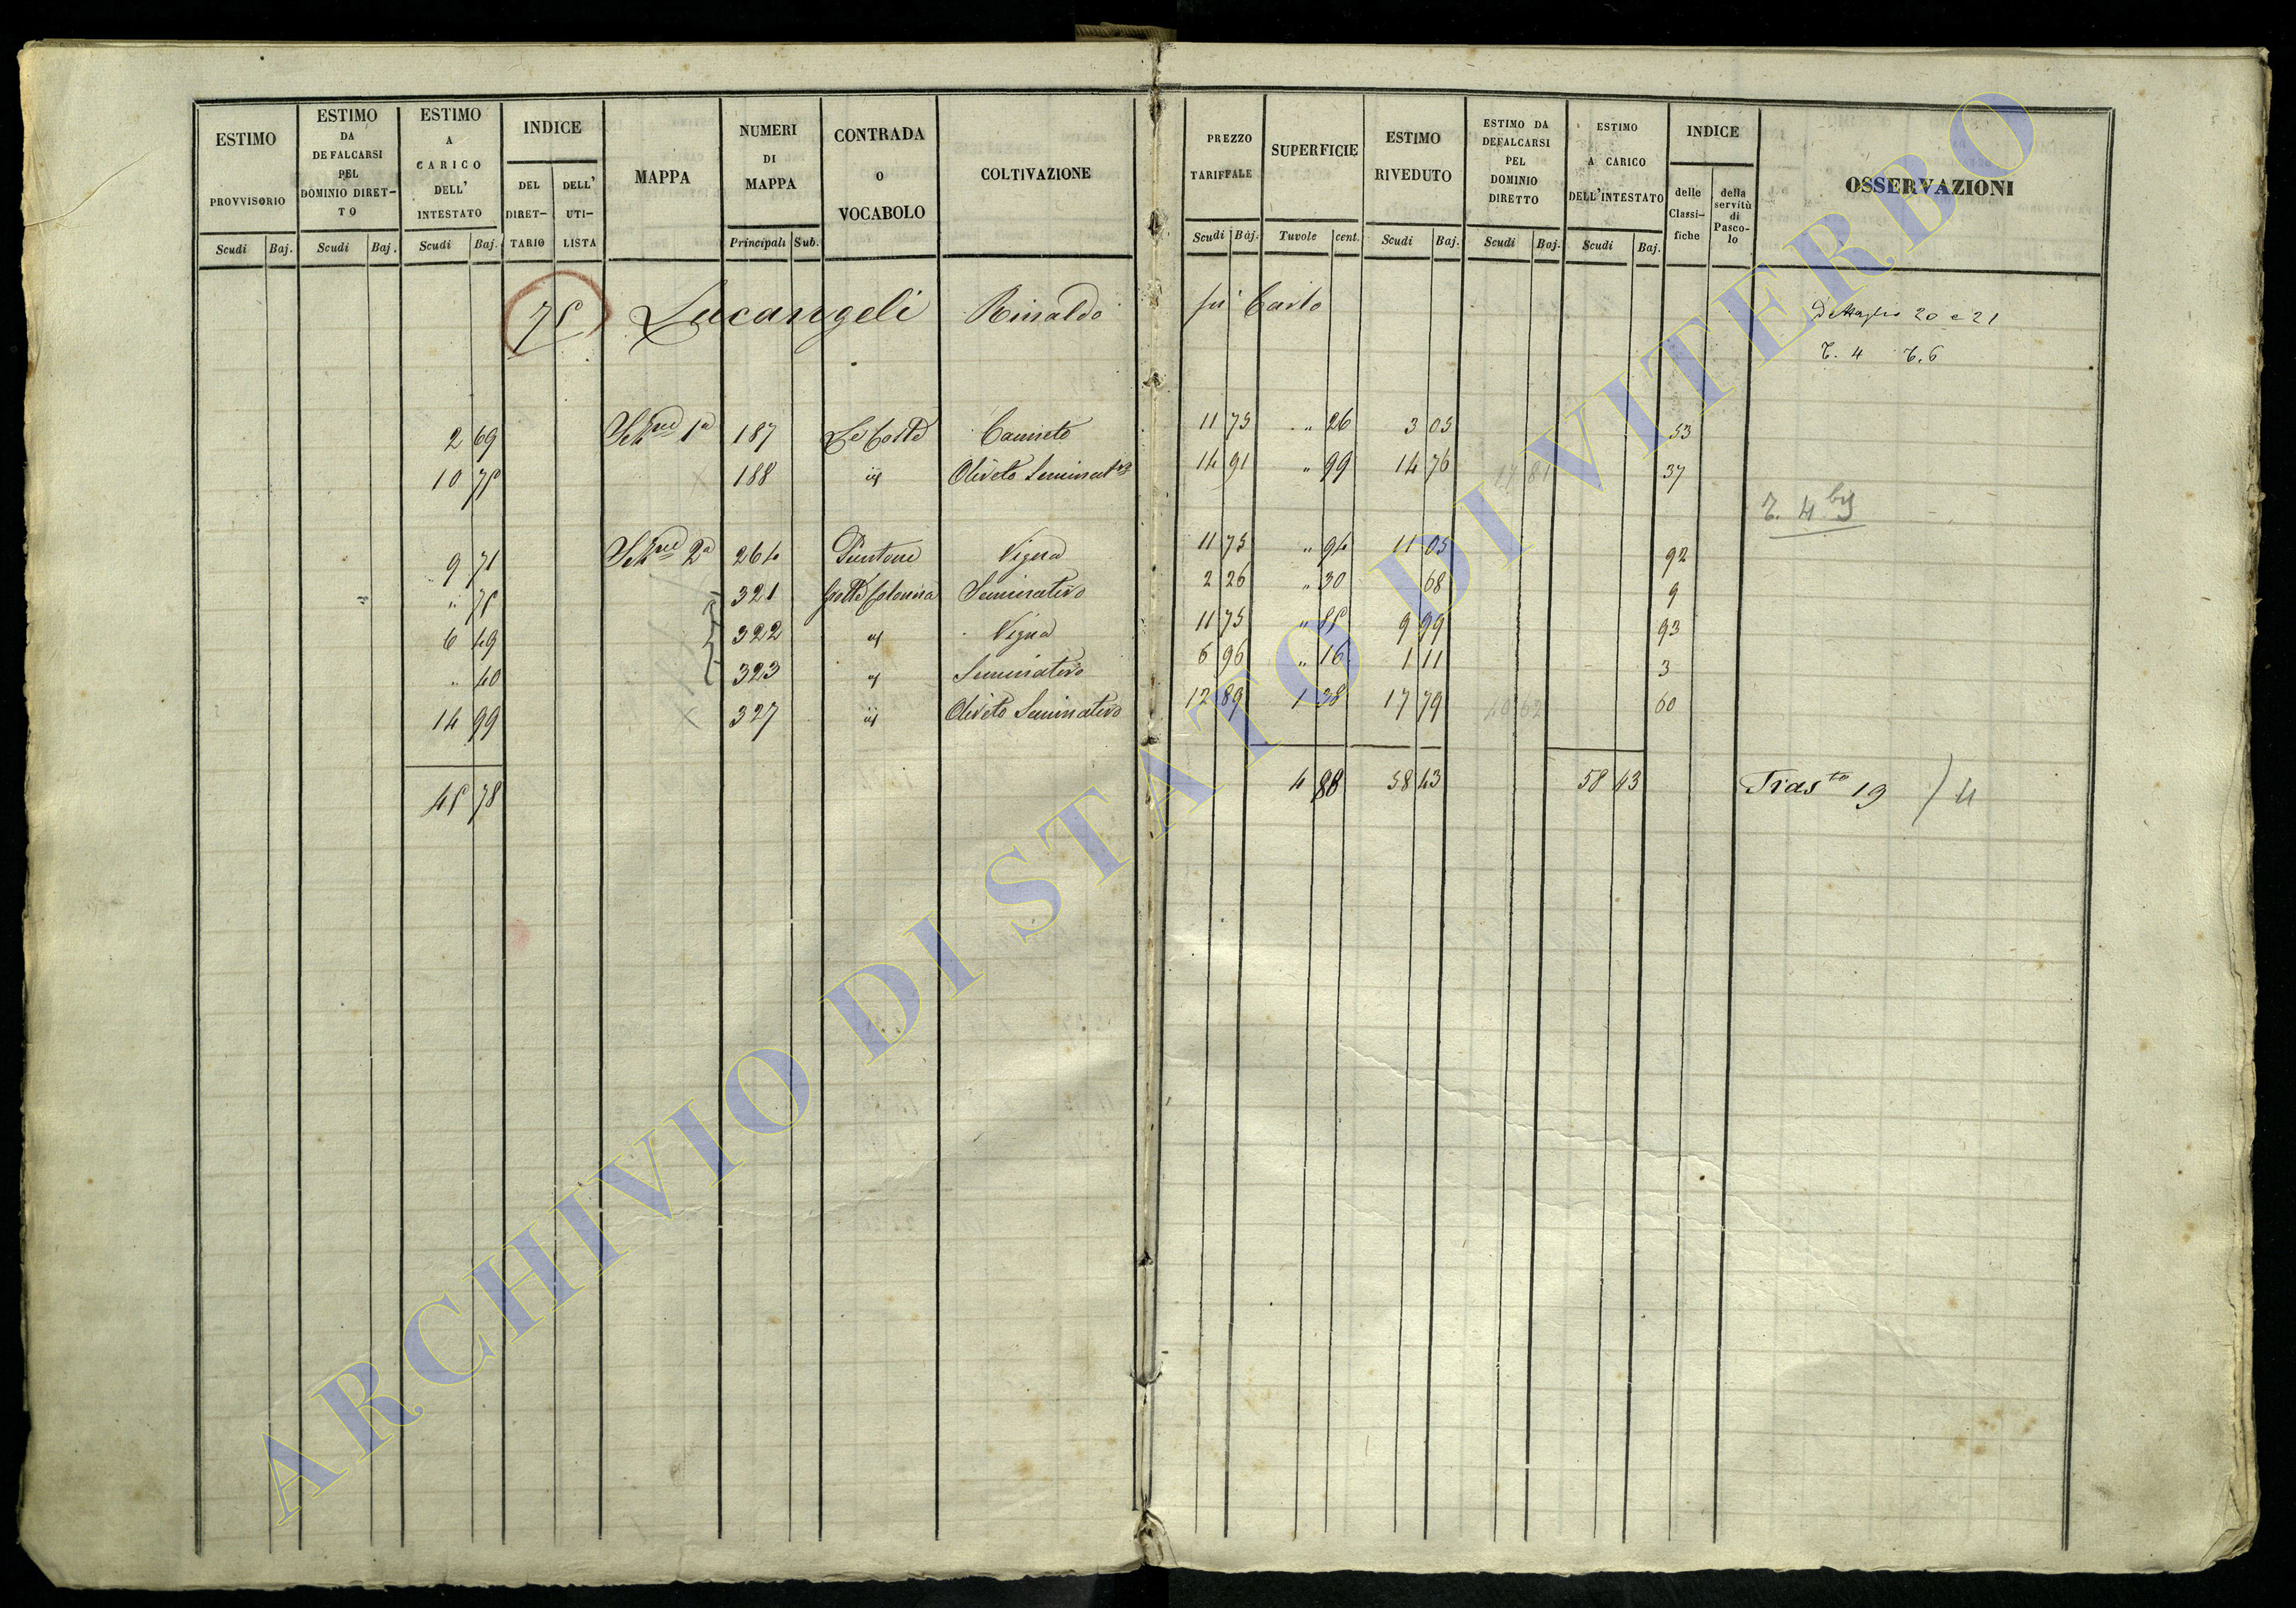 ESTIMO PROVVISORIO Scudi Baj.
ESTIMO DA DEFALCARSI PEL DOMINIO DIRETTO Scudi Baj.
ESTIMO A CARICO DELL' INTESTATO Scudi Baj.
INDICE DEL DIRETTARIO DELL' UTILISTA
MAPPA
NUMERI DI MAPPA Principali Sub.
CONTRADA O VOCABOLO
COLTIVAZIONE
PREZZO TARIFFALE Scudi Baj.
SUPERFICIE Tavole cent.
ESTIMO RIVEDUTO Scudi Baj.
ESTIMO DA DEFALCARSI PEL DOMINIO DIRETTO Scudi Baj.
ESTIMO A CARICO DELL'INTESTATO Scudi Baj.
INDICE delle Classifiche della servitù di Pascolo
OSSERVAZIONI
75 Lucangeli Rinaldo fu Carlo Dettaglio 20 e 21
T. 4 T. 6
2 69 Sez.ne 1a 187 Le Coste Canneto 11 75 " 26 3 05 53
10 75 188 id Oliveto Seminat.vo 14 91 " 99 14 76 37
T. 4 bis
9 71 Sez.ne 2a 264 Puntone Vigna 11 75 " 94 11 05 92
" 75 321 Seminativo 2 26 " 30 68 9
6 49 322 id Vigna 11 75 " 85 9 99 93
" 40 323 id Seminativo 6 96 " 16 1 11 3
14 99 327 id Oliveto Seminativo 12 89 1 38 17 79 60
45 78 4 88 58 43 58 43 Tras.to 19 / 4
ARCHIVIO DI STATO DI VITERBO